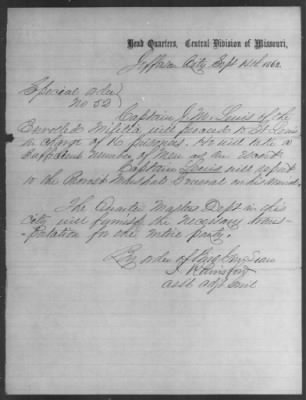 Head Quarters, Central Division of Missouri,
Jefferson City Sept 1862
Special Order
No 52
Captain J. M. Lewis of the
Enrolled Militia will proceed to St Louis
in charge of prisoners. He will take a
Sufficient number of men as an Escort
Captain Lewis will report
to the Provost Marshal General on his arrival
The Quarter Masters Dept in this
City will furnish the necessary trans-
portation for the entire party.
By order of Brig Gen
asst adjt Genl